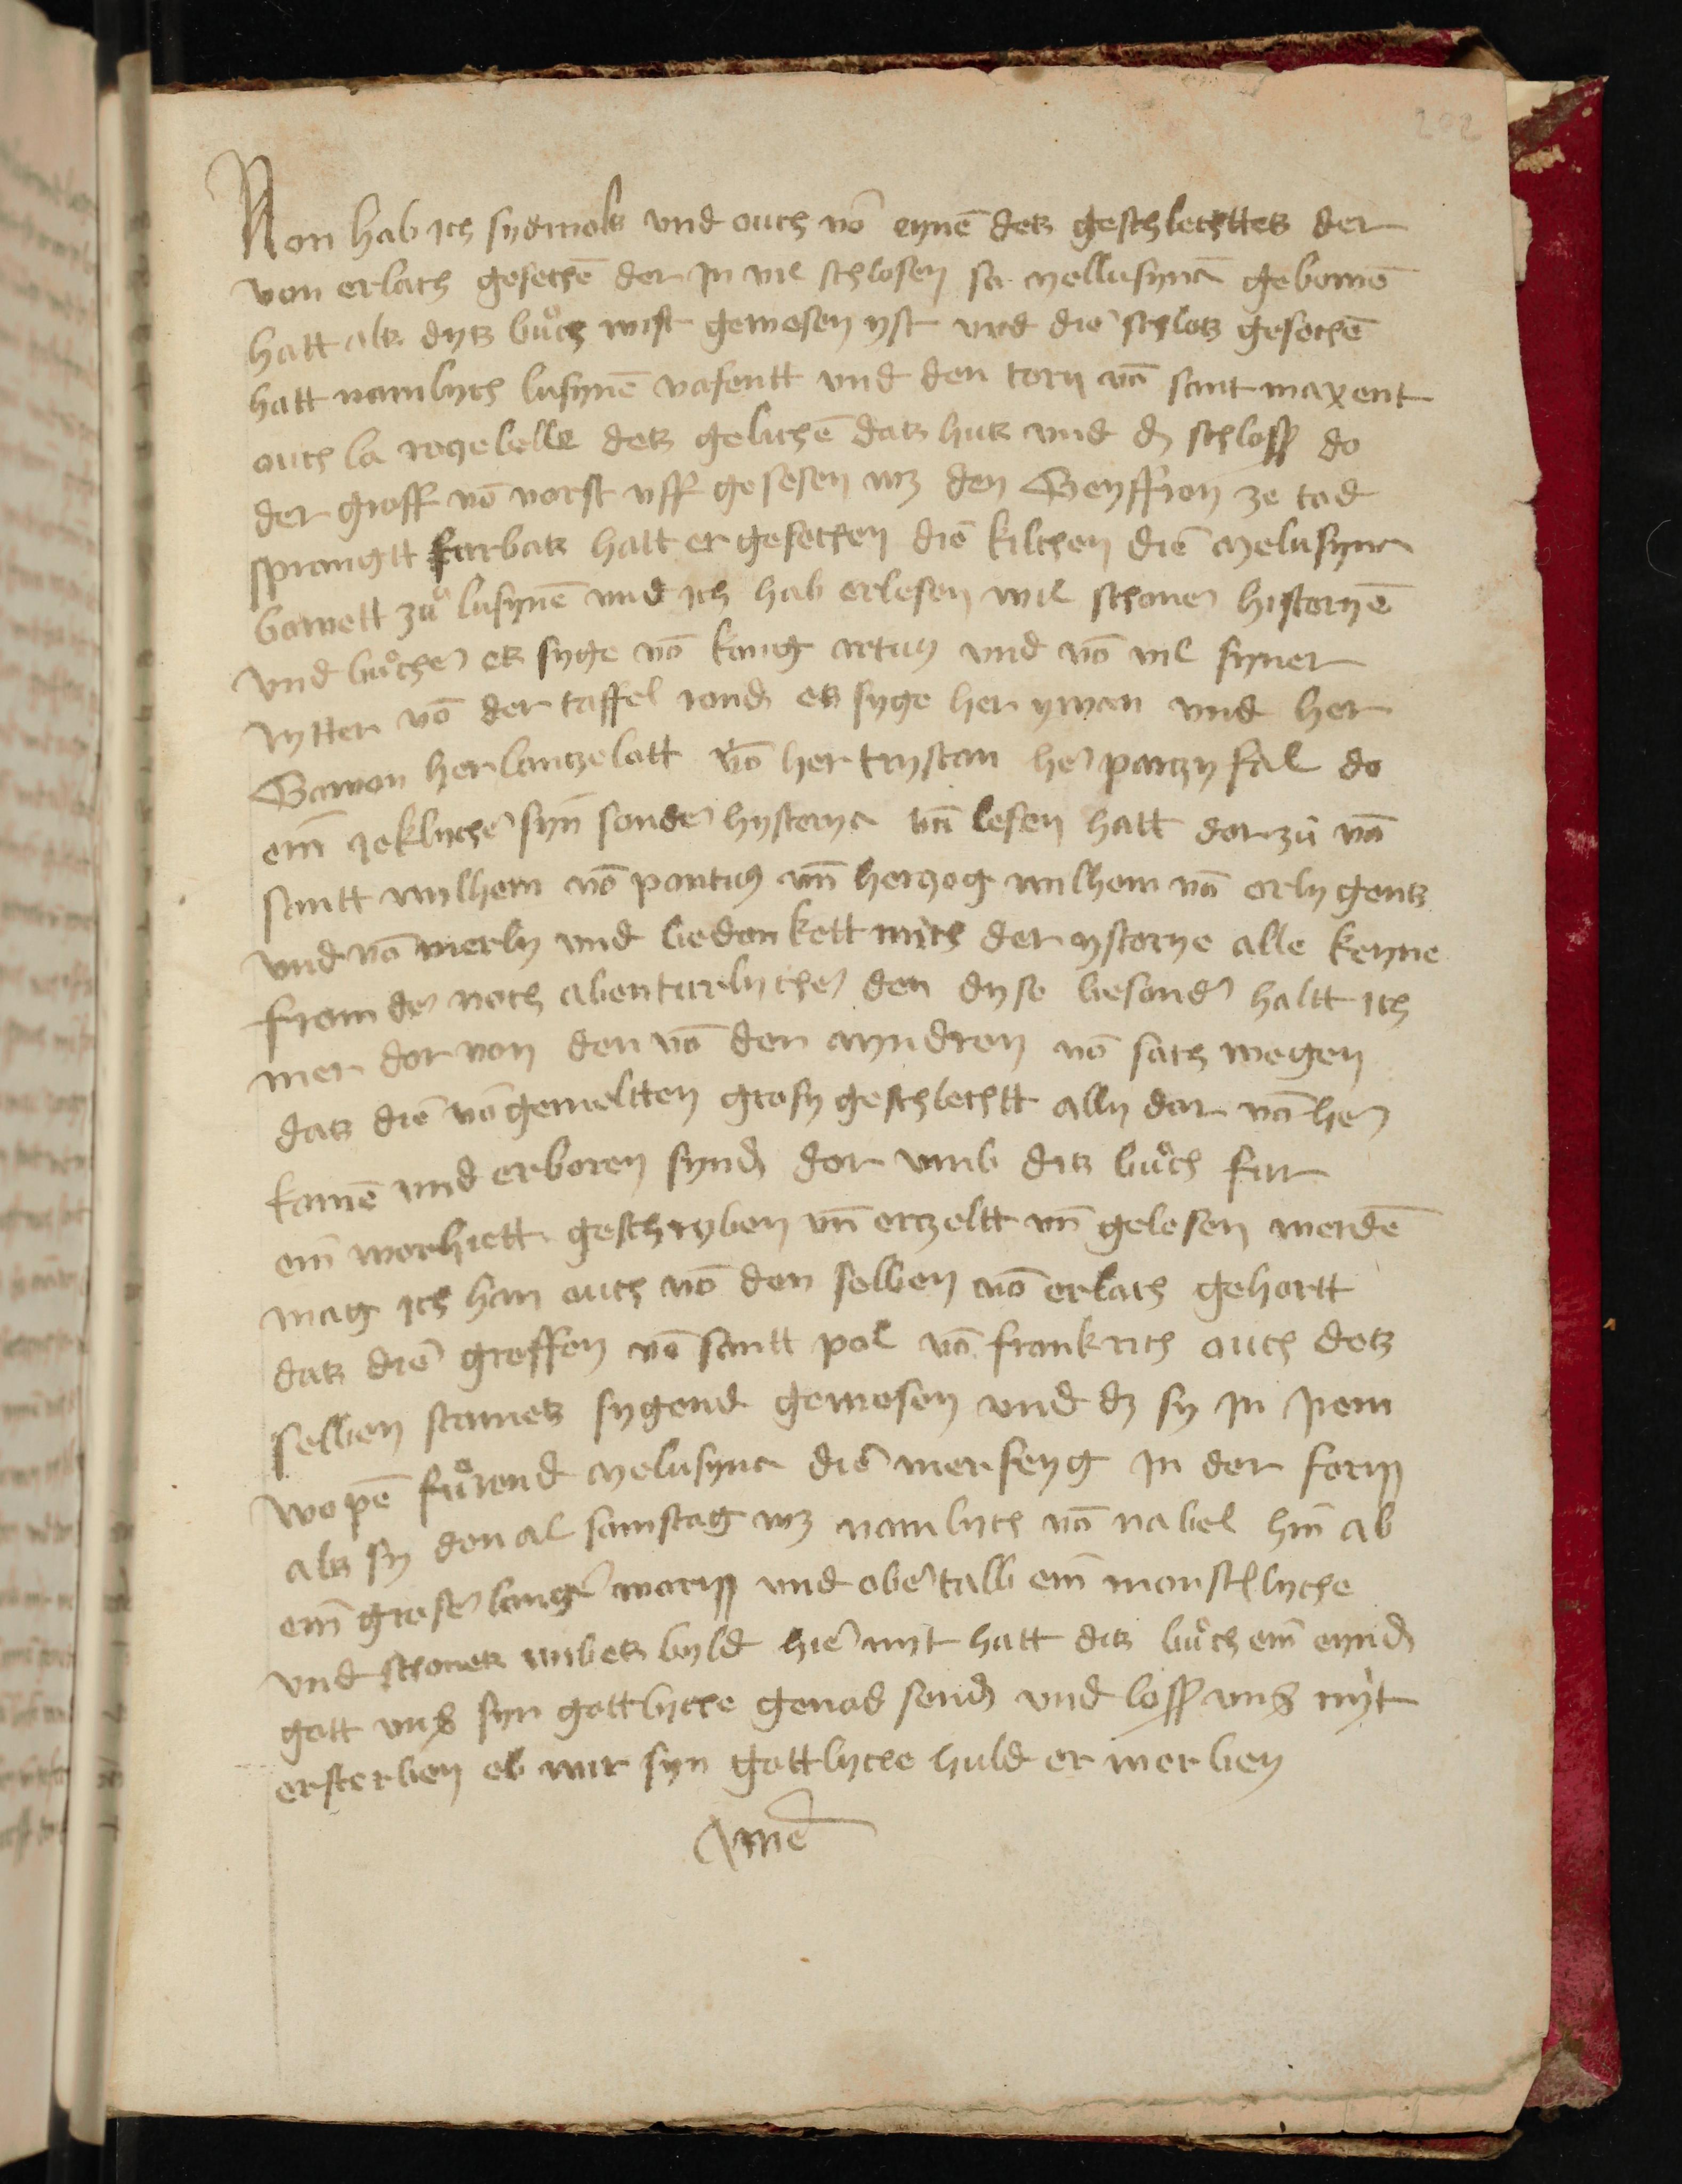 202
Non hab ich sydmols vnd ouch vō eynē detz geschlechttetz der
von erlach gesechē der jn vil schlosen so mellusynā gebowē
hatt alz dytz bůch wist gewesen yst vnd die schlotz gesechē
hatt namlych lusynē vafentt vnd den torn vō sant maxent
ouch la rogebelle detz gelichē datz hutz vnd dz schloss do
der groff vō vorst vff gesesen wz den Geyffron ze tod
sprangtt furbatz hatt er gesechen die kilchen die melusyna
bowett zů lusynē vnd ich hab erlesen vil schoner historyē
vnd bůcher ez syge vō kong artus vnd vō vil syner
rytter vō der taffel rond es syge her ywan vnd her
Gawon her lantzelott vō her trystan her partzyfal do
ein jeklycher syn sonder hystorya vn lesen hatt dorzů vō
santt wylhem vō pontus vn hertzog wilhem vō orlygentz
vnd vō merly vnd bedonkett mich der ystorye alle keyne
fromder noch abenturlycher den dyse besonder haltt ich
mer dorvon den vō den myndren vō sach wegen
datz die vorgemeltten grosy geschlechtt ally dar vō her
komē vnd erboren synd dor vmb ditz bůch fur
ein worhiett geschryben vn ertzeltt vn gelesen werdē
mag ich han ouch vō den selben vō erlach gehortt
datz die groffen vō santt pol vō frankrich ouch detz
selben stametz sygend gewesen vnd dz sy jn jrem
wopē fůrend melusyna die merfeyg jn der form
alz sy den al samstag wz namlych vō nabel hin ab
ein groser langer worm vnd obertalb ein monschlyche
vnd schonetz wibetz byld hie myt hatt ditz bůch ein eynd
gott vns syn gottlyche genod send vnd loss vns nyt
ersterben eb wir syn gottlyche huld er werben
Amē